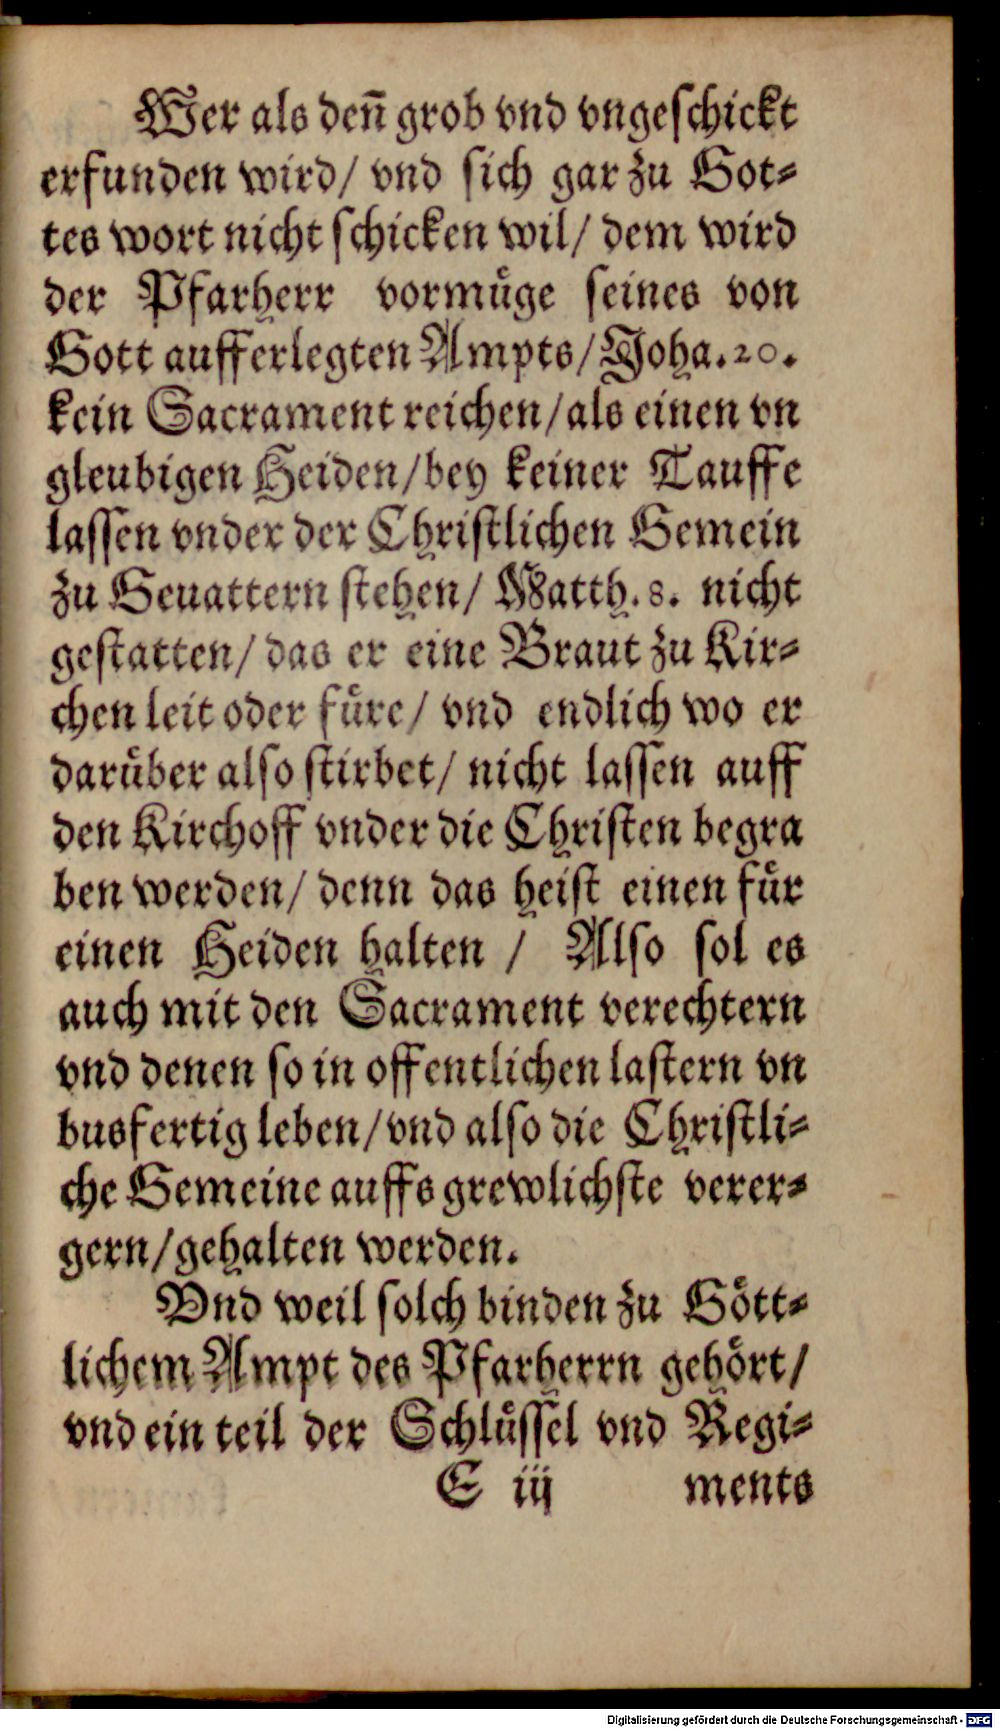 Wer als deñ grob vnd vngeschickt
erfunden wird/ vnd sich gar zu Got⸗
tes wort nicht schicken wil/ dem wird
der Pfarherr vormuͤge seines von
Gott aufferlegten Ampts/ Joha. 20.
kein Sacrament reichen/ als einen vn
gleubigen Heiden/ bey keiner Tauffe
lassen vnder der Christlichen Gemein
zu Geuattern stehen/ Matth. 8. nicht
gestatten/ das er eine Braut zu Kir⸗
chen leit oder fuͤre/ vnd endlich wo er
daruͤber also stirbet/ nicht lassen auff
den Kirchoff vnder die Christen begra
ben werden/ denn das heist einen fuͤr
einen Heiden halten / Also sol es
auch mit den Sacrament verechtern
vnd denen so in offentlichen lastern vn
busfertig leben/ vnd also die Christli⸗
che Gemeine auffs grewlichste verer⸗
gern/ gehalten werden.
Vnd weil solch binden zu Goͤtt⸗
lichem Ampt des Pfarherrn gehoͤrt/
vnd ein teil der Schluͤssel vnd Regi⸗
E iij ments
Digitalisierung gefördert durch die Deutsche Forschungsgemeinschaft - DFG